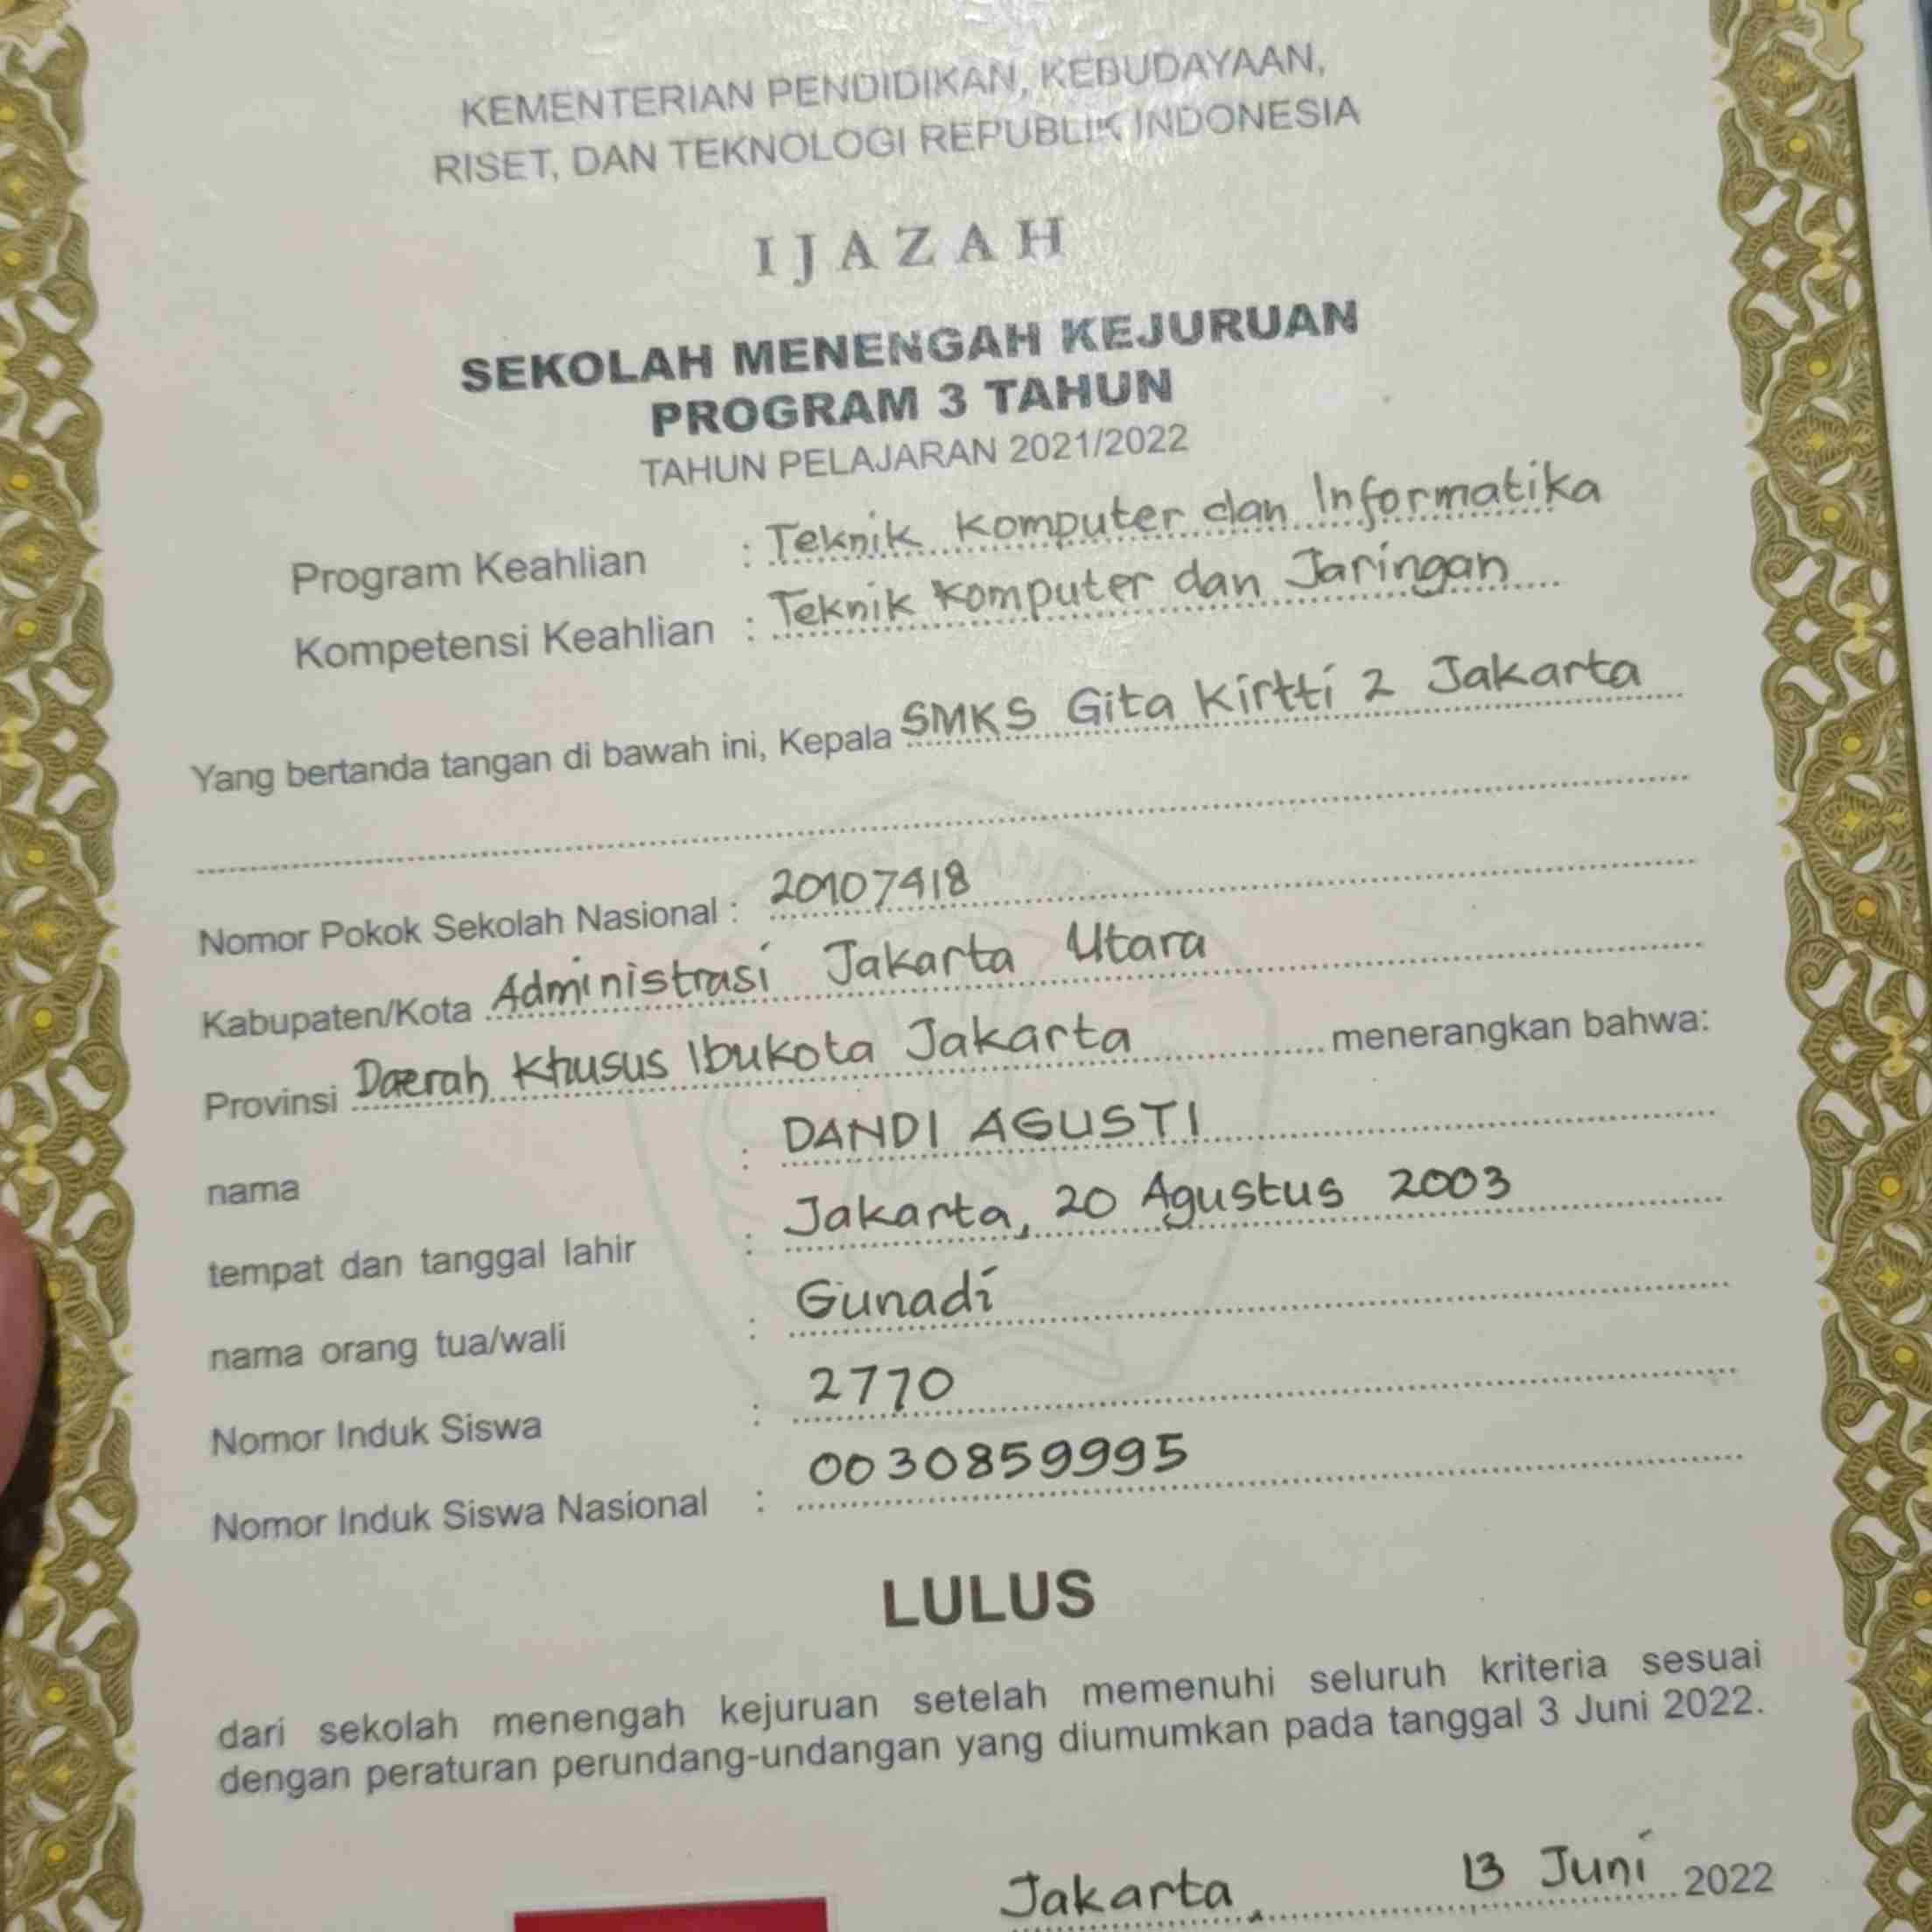 KEMENTERIAN PENDIDIKAN, KEBUDAYAAN,
RISET, DAN TEKNOLOGI REPUBLIK INDONESIA
IJAZAH
SEKOLAH MENENGAH KEJURUAN
PROGRAM 3 TAHUN
TAHUN PELAJARAN 2021/2022
Program Keahlian : Teknik Komputer dan Informatika
Kompetensi Keahlian : Teknik Komputer dan Jaringan
Yang bertanda tangan di bawah ini, Kepala SMKS Gita Kirtti 2 Jakarta
Nomor Pokok Sekolah Nasional : 20107418
Kabupaten/Kota Administrasi Jakarta Utara
Provinsi Daerah Khusus Ibukota Jakarta menerangkan bahwa:
nama : DANDI AGUSTI
tempat dan tanggal lahir : Jakarta, 20 Agustus 2003
nama orang tua/wali : Gunadi
Nomor Induk Siswa : 2770
Nomor Induk Siswa Nasional : 0030859995
LULUS
dari sekolah menengah kejuruan setelah memenuhi seluruh kriteria sesuai
dengan peraturan perundang-undangan yang diumumkan pada tanggal 3 Juni 2022.
Jakarta, 13 Juni 2022